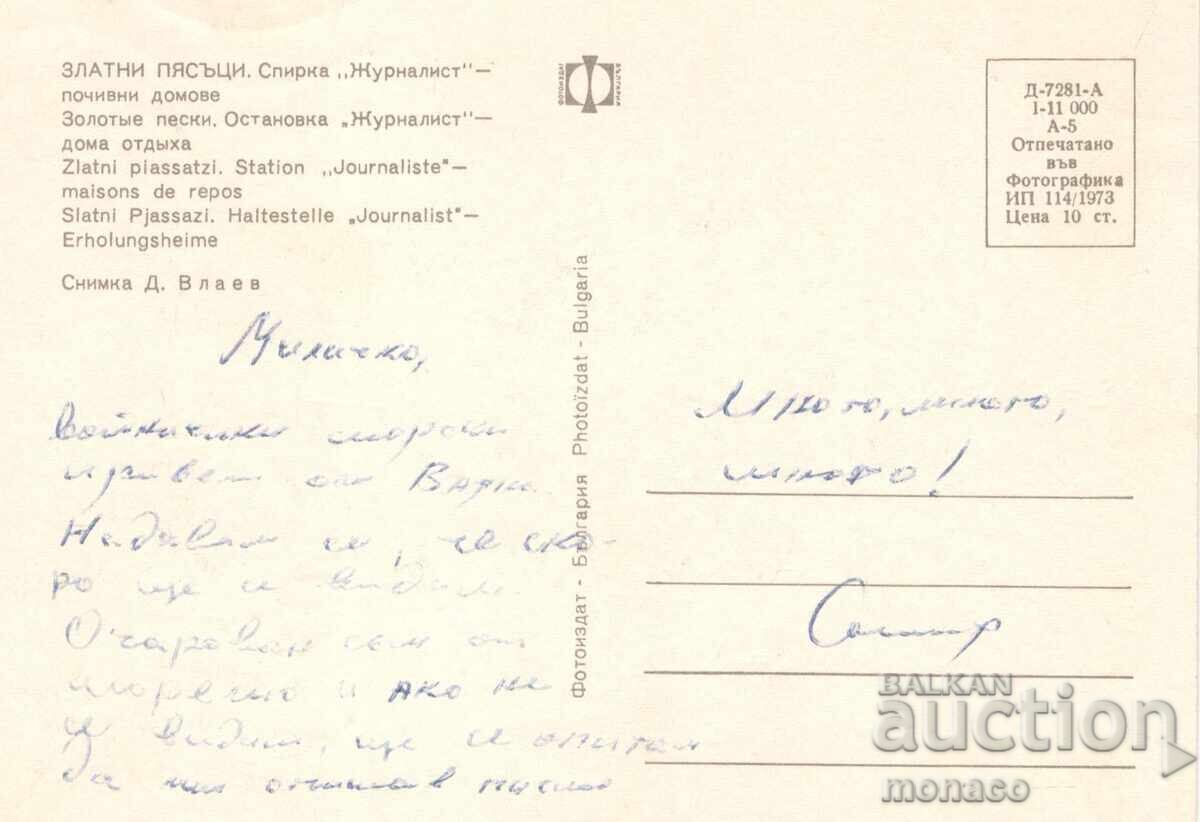 ЗЛАТНИ ПЯСЪЦИ. Спирка „Журналист"—
почивни домове
Золотые пески. Остановка „Журналист"—
дома отдыха
Zlatni piassatzi. Station „Journaliste"—
maisons de repos
Slatni Pjassazi. Haltestelle „Journalist"—
Erholungsheime
Снимка Д. Влаев
ФОТОИЗДАТ
БЪЛГАРИЯ
Д-7281-А
I-11 000
А-5
Отпечатано
във
Фотографика
ИП 114/1973
Цена 10 ст.
Фотоиздат - България Photoïzdat - Bulgaria
Миличко,
войнишки морски
от Варна.
Надявам се, че ско-
ро ще се видим.
Очарован съм от
морето и ако не
се видим, ще се опитам
да ти писмо
Много, много,
много!
BALKAN
auction
monaco